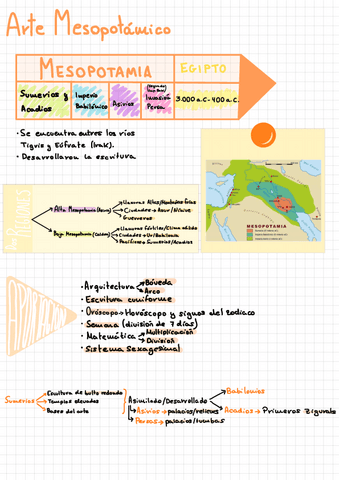 Arte Mesopotámico
MESOPOTAMIA
EGIPTO
Sumerios y
Acadios
Imperio
Babilónico
Asirios
Invasión
Persa
3.000 a.C.-400 a.C.
• Se encuentra entres los ríos
Tigris y Eúfrate (Irak).
• Desarrollaron la escritura
MESOPOTAMIA
Alta Mesopotamia
Llanuras Altas/Montañas frías
Ciudades → Asur/Nínive
Guerreros
Baja Mesopotamia
Llanuras fértiles/Clima cálido
Ciudades → Ur/Babilonia
Pacíficos Sumerios/Acadios
• Arquitectura
Bóveda
Arco
• Escritura cuniforme
• Oróscopo → Horóscopo y signos del zodiaco
• Semana (división de 7 días)
• Matemática
Multiplicación
División
• Sistema Sexagesimal
Sumerios
Escultura de bulto redondo
Templos elevados
Bases del arte
Asimilado/Desarrollado
Babilonios
Asirios → palacios/relieves
Acadios → Primeros Zigurats
Persas → palacios/tumbas